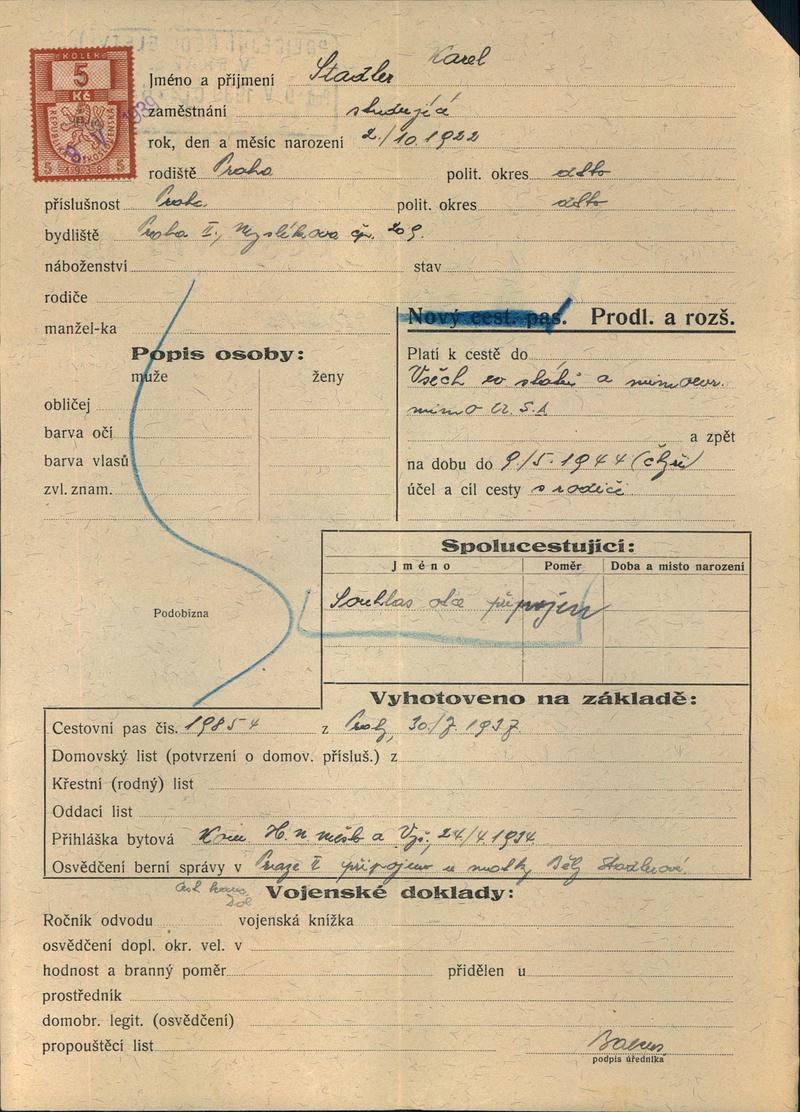 KOLEK
5
Kč
REPUBLIKA ČESKOSLOVENSKÁ
5 1938 5
1939
Jméno a příjmení Stadler Karel
zaměstnání studující
rok, den a měsíc narození 2./10. 1922
rodiště Praha polit. okres dtto
příslušnost Praha polit. okres dtto
bydliště Praha II, Myslíkova čp. 209.
náboženství stav
rodiče
manžel-ka
Nový cest. pas. Prodl. a rozš.
Popis osoby:
muže ženy
obličej
barva očí
barva vlasů
zvl. znam.
Platí k cestě do
Všech ev. států a mimoevr.
mimo U. S. A
a zpět
na dobu do 9/5. 1944
účel a cíl cesty s rodiči
Spolucestující:
Jméno Poměr Doba a místo narození
Souhlas otce připojen
Podobizna
Vyhotoveno na základě:
Cestovní pas čís. 19854 z Prahy 30/7. 1937
Domovský list (potvrzení o domov. přísluš.) z
Křestní (rodný) list
Oddací list
Přihláška bytová 24/4. 1934
Osvědčení berní správy v Praze II připojeno u matky Běly Stadlerové.
Vojenské doklady:
Ročník odvodu vojenská knížka
osvědčení dopl. okr. vel. v
hodnost a branný poměr přidělen u
prostředník
domobr. legit. (osvědčení)
propouštěcí list
podpis úředníka